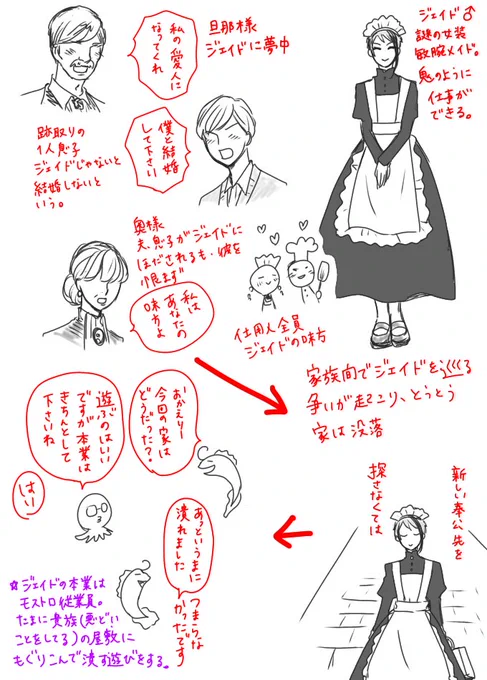 ジェイド♂
謎の女装
敏腕メイド。
鬼のように
仕事が
できる。
旦那様
ジェイドに夢中
私の愛人に
なってくれ
僕と結婚
して下さい
跡取りの
1人息子
ジェイドじゃないと
結婚しないと
いう。
奥様
夫、息子がジェイドに
ほだされるも、彼を
恨まず
私は
あなたの
味方よ
仕用人全員
ジェイドの味方
家族間でジェイドを巡る
争いが起こり、とうとう
家は没落
新しい奉公先を
探さなくては
おかえりー
今回の家は
どうだった?
遊ぶのはいい
ですが本業は
きちんとして
下さいね
はい
あっというまに
潰れました
つまらな
かったです
☆ジェイドの本業は
モストロ従業員。
たまに貴族(悪どい
ことをしてる)の屋敷に
もぐりこんで潰す遊びをする。